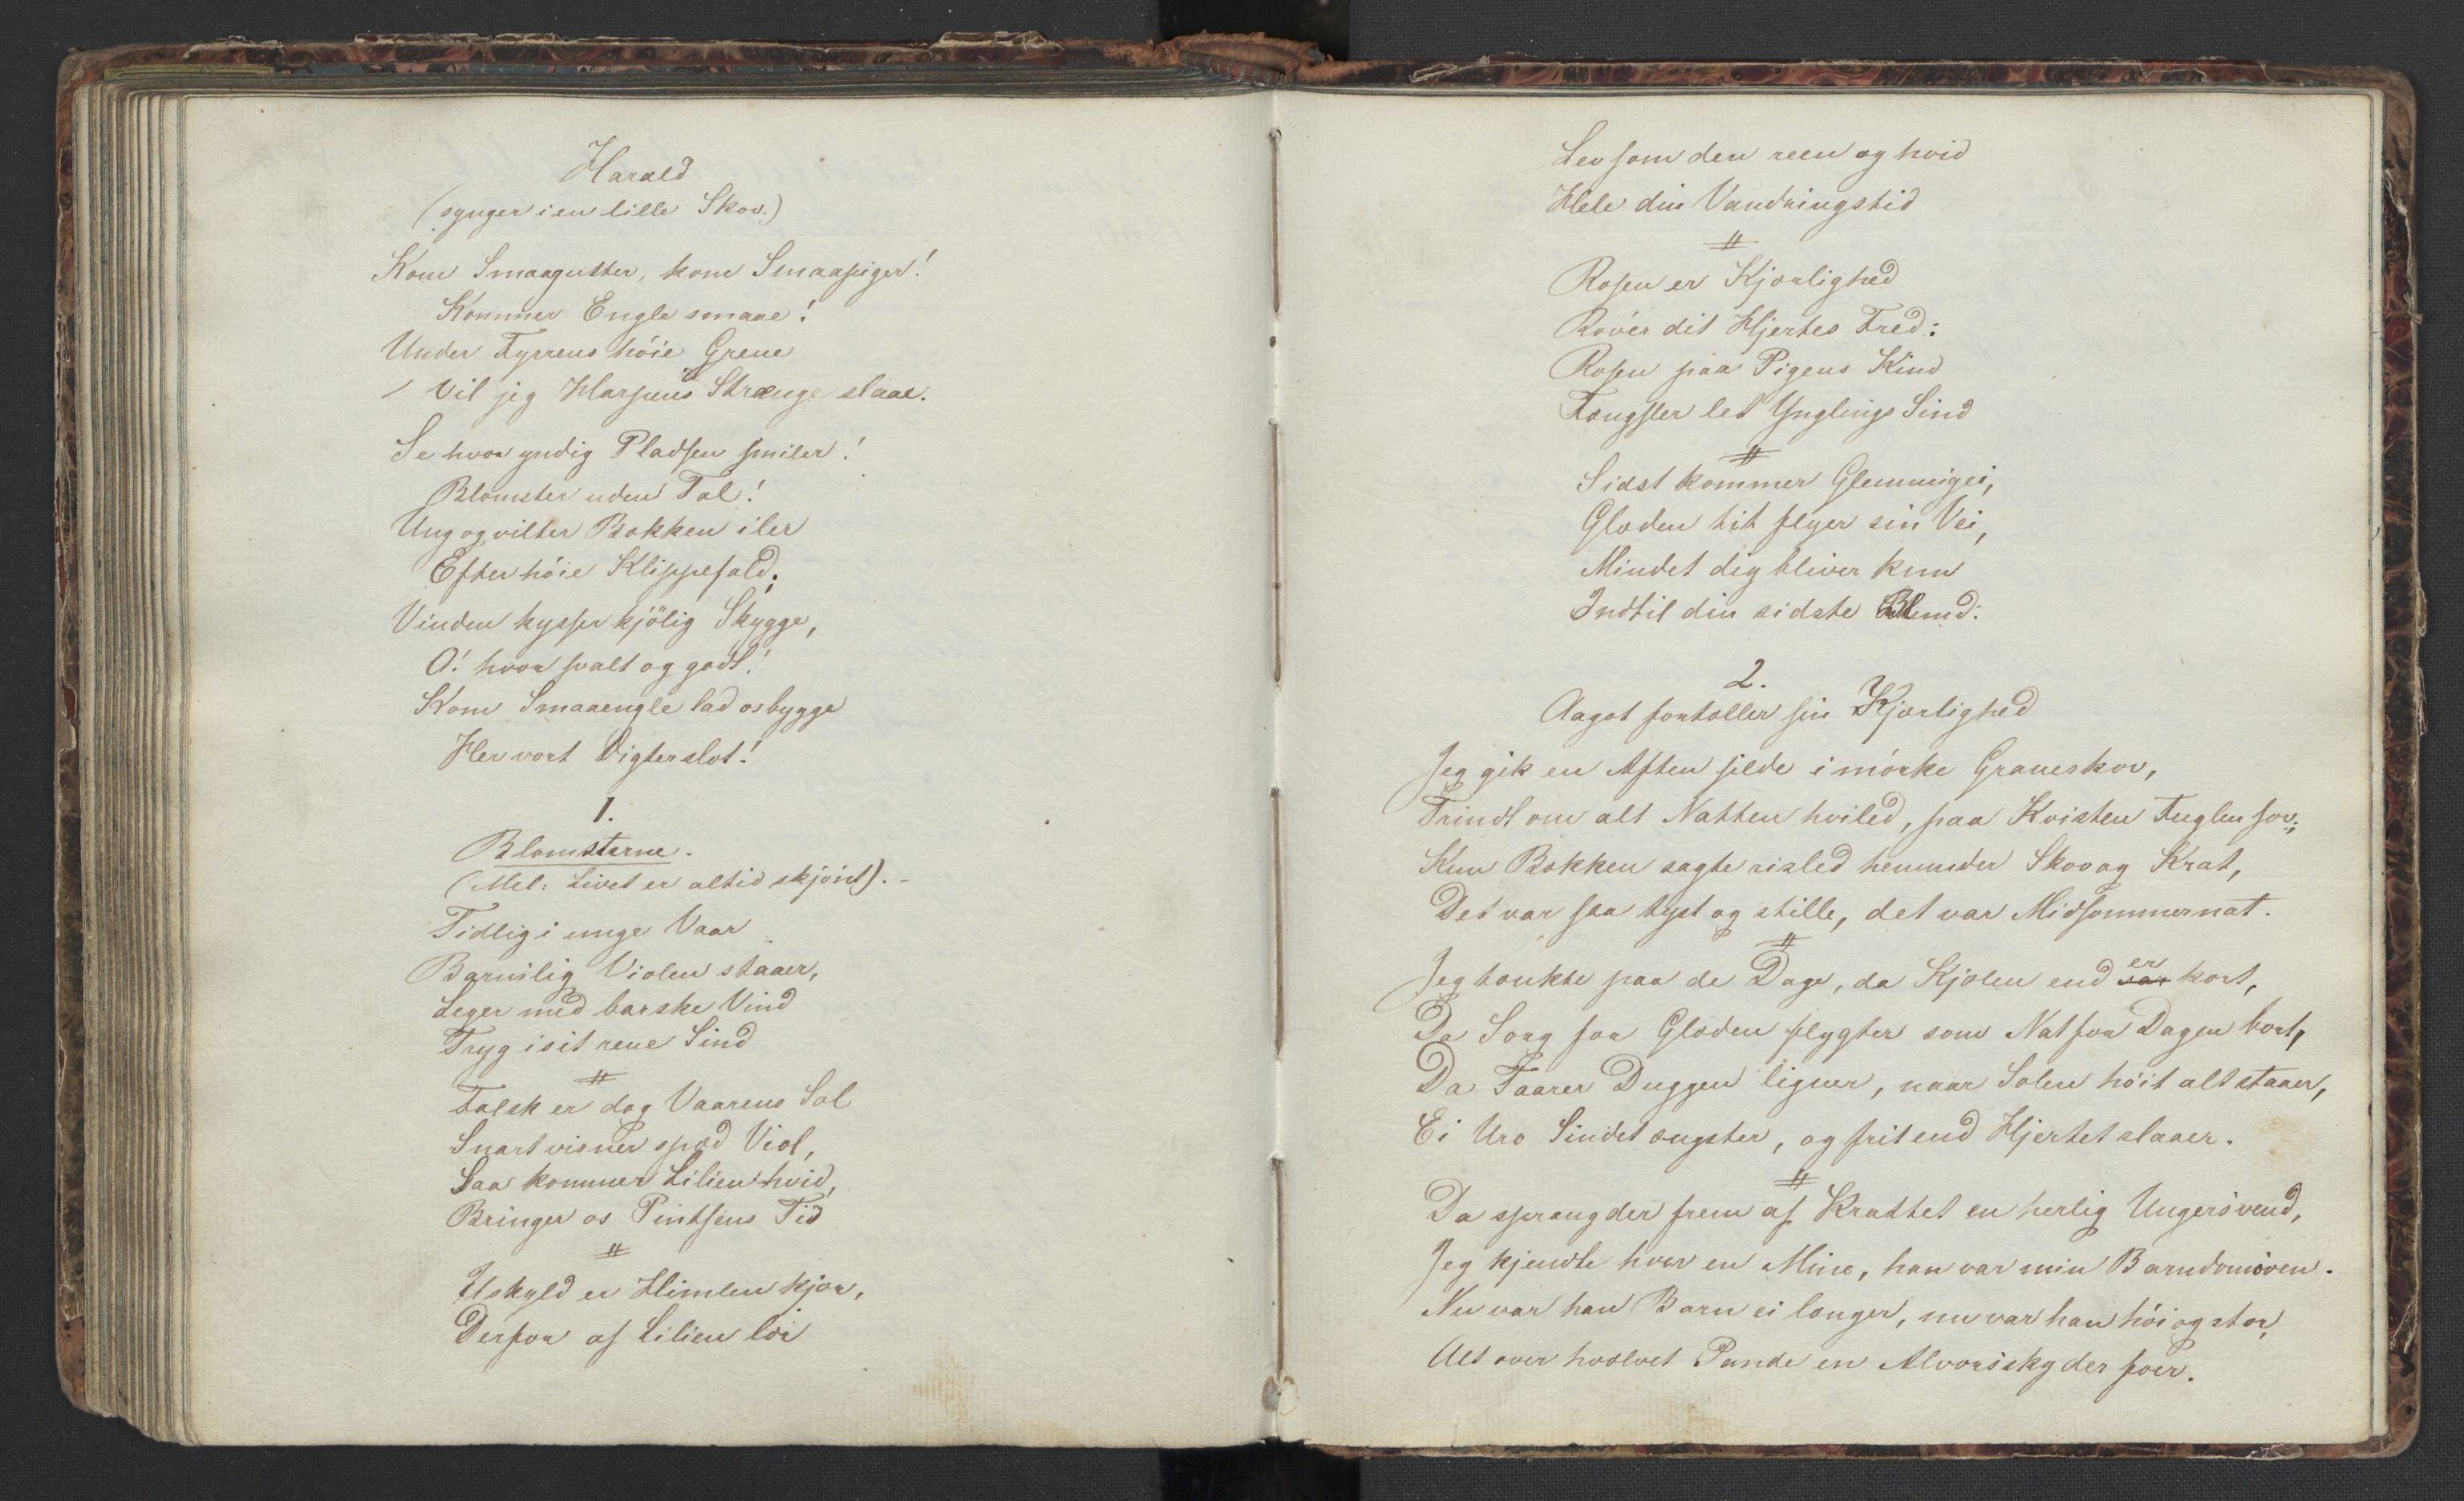 Harald
(synger i en lille Skov.)
Kom Smaagutter, kom Smaapiger!
Kommer Engle smaae!
Under Fyrrens höie Grene
Vil jeg Harpens Strænge slaae.
Se hvor yndig Pladsen smiler!
Blomster uden Tal!
Ung og vilter Bækken iler
Efter höie Klippefald;
Vinden kysser kjölig Skygge,
O! hvor svalt og godt!
Kom Smaaengle lad os bygge
Her vort Digterslot!
1.
Blomsterne.
(Mel: Livet er altid skjönt).-
Tidlig i unge Vaar
Barnslig Violen staaer,
Leger med barske Vind
Tryg i sit rene Sind
#
Falsk er dog Vaarens Sol
Snart visner spæd Viol,
Saa kommer Lilien hvid,
Bringer os Pintsens Tid
#
Uskyld er Himlen kjær,
Derfor af Lilien lær
Lev som den reen og hvid
Hele din Vandringstid
#
Rosen er Kjærlighed
Röver dit Hjertes Fred:
Rosen paa Pigens Kind
Fængsler let Ynglings Sind
#
Sidst kommer Glemmigei,
Glæden tit flyer sin Vei,
Mindet dig bliver kun
Indtil din sidste Blund:
2.
Aagot fortæller sin Kjærlighed
Jeg gik en Aften silde i mörke Graneskov,
Trindt om alt Natten hviled, paa Kvisten Fuglen sov;
Kun Bækken sagte risled henunder Skov og Krat,
Det var saa tyst og stille, det var Midsommernat.
#
Jeg tænkte paa de Dage, da Kjolen end var er kort,
Da Sorg for Glæden flygter som Nat for Dagen bort,
Da Taarer Duggen ligner, naar Solen höit alt staaer,
Ei Uro Sindet ængster, og frit end Hjertet slaaer.
#
Da sprang der frem af Krattet en herlig Ungersvend,
Jeg kjendte hver en Mine, han var min Barndomsven.
Nu var han Barn ei længer, nu var han höi og stor,
Alt over hvælvet Pande en Alvorssky der foer.